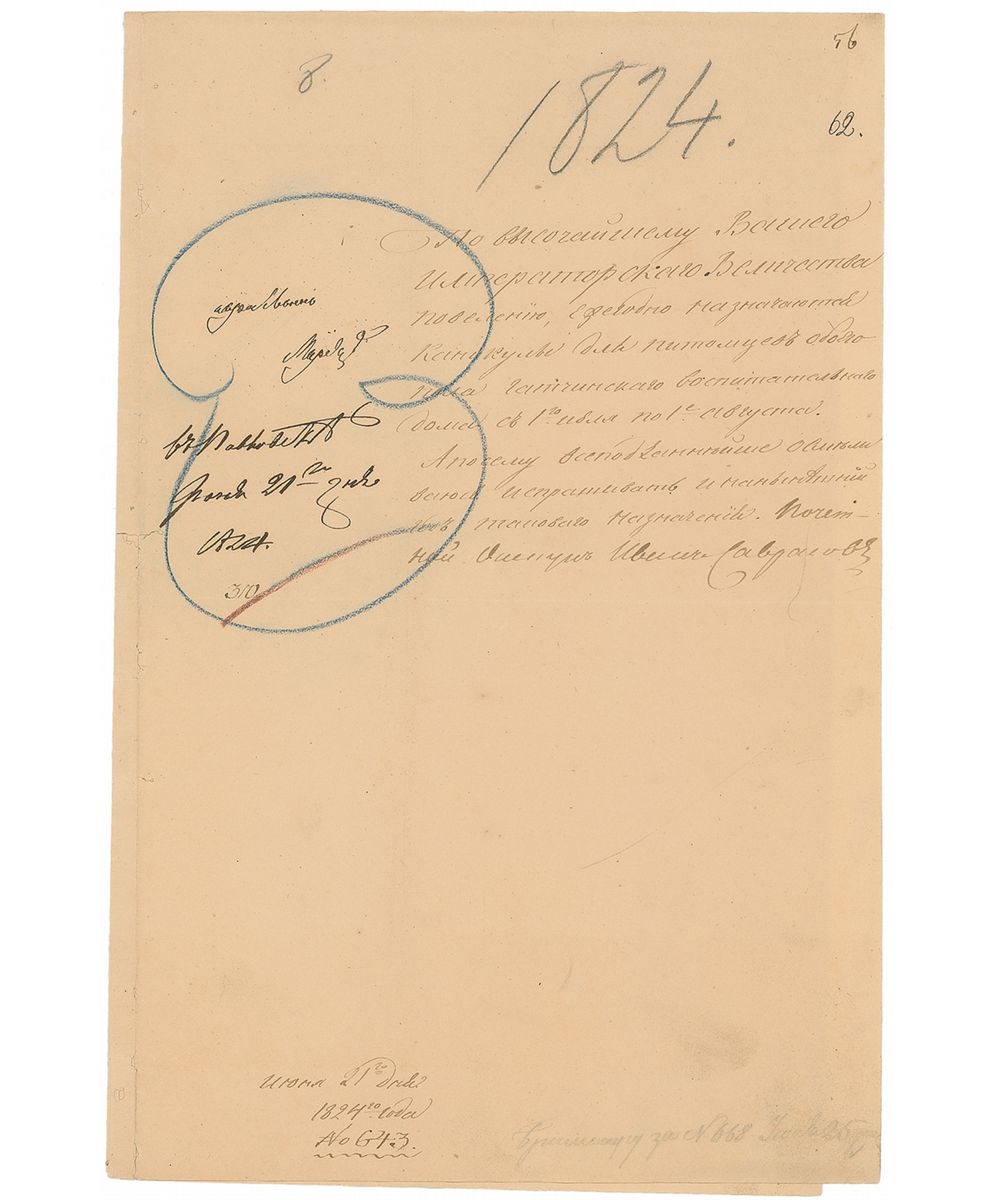 56
8.
1824.
62.
По высочайшему Вашего
Императорскаго Величества
повелению, ежегодно назначаются
каникулы для питомцовъ обоего
пола Гатчинскаго воспитательнаго
дома съ 1го июля по 1е августа.
А посему всеподданнейше осмели
ваюсь испрашивать и на нынѣшний
годъ таковаго назначения. Почет-
ной Опекунъ
Марія
въ Павловскѣ
Июня 21го дня
1824.
310
Июня 21го дня
1824го года
No 643.
за N 668